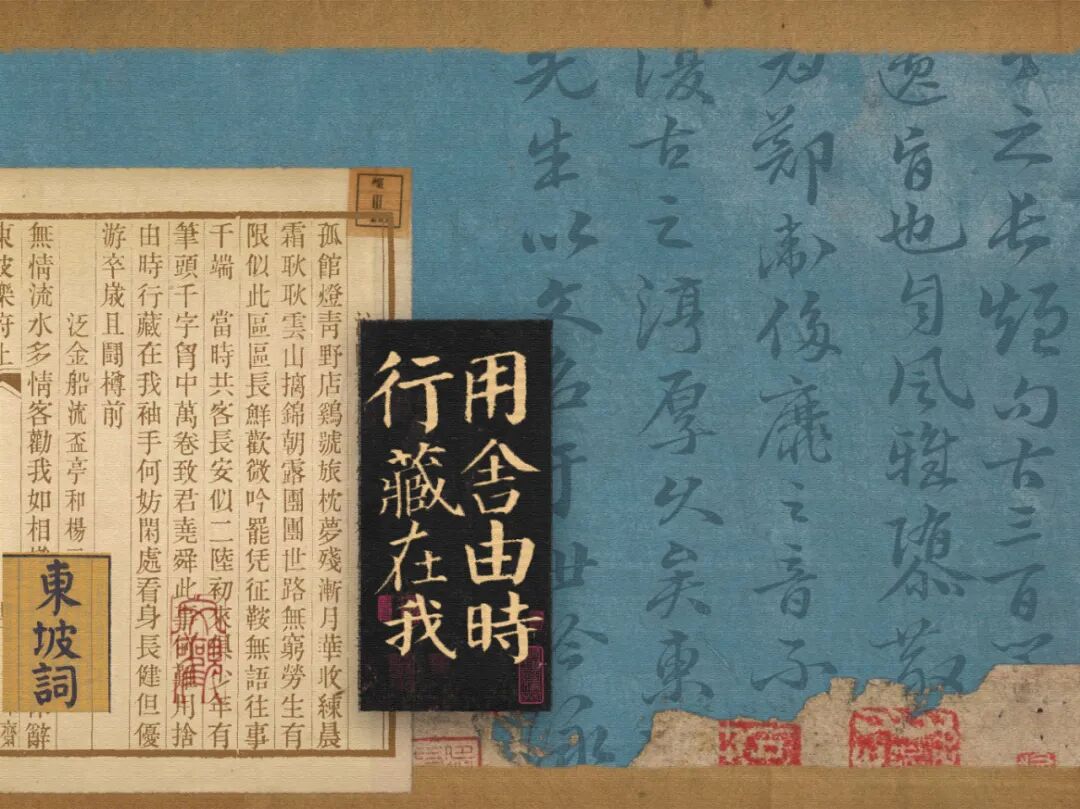 之長短句古三百
遺旨也自風雅隳散
爲鄭衛侈靡之音不
復古之淳厚久矣東
先生以文名于世吟詠
用舍由時
行藏在我
孤館燈青野店鷄號旅枕夢殘漸月華收練晨
霜耿耿雲山摛錦朝露團團世路無窮勞生有
限似此區區長鮮歡微吟罷凭征鞍無語往事
千端　當時共客長安似二陸初來俱少年有
筆頭千字胷中萬卷致君堯舜此事何難用捨
由時行藏在我袖手何妨閑處看身長健但優
游卒歲且鬭樽前
泛金船流盃亭和楊
無情流水多情客勸我如相
東坡樂府上
東坡詞